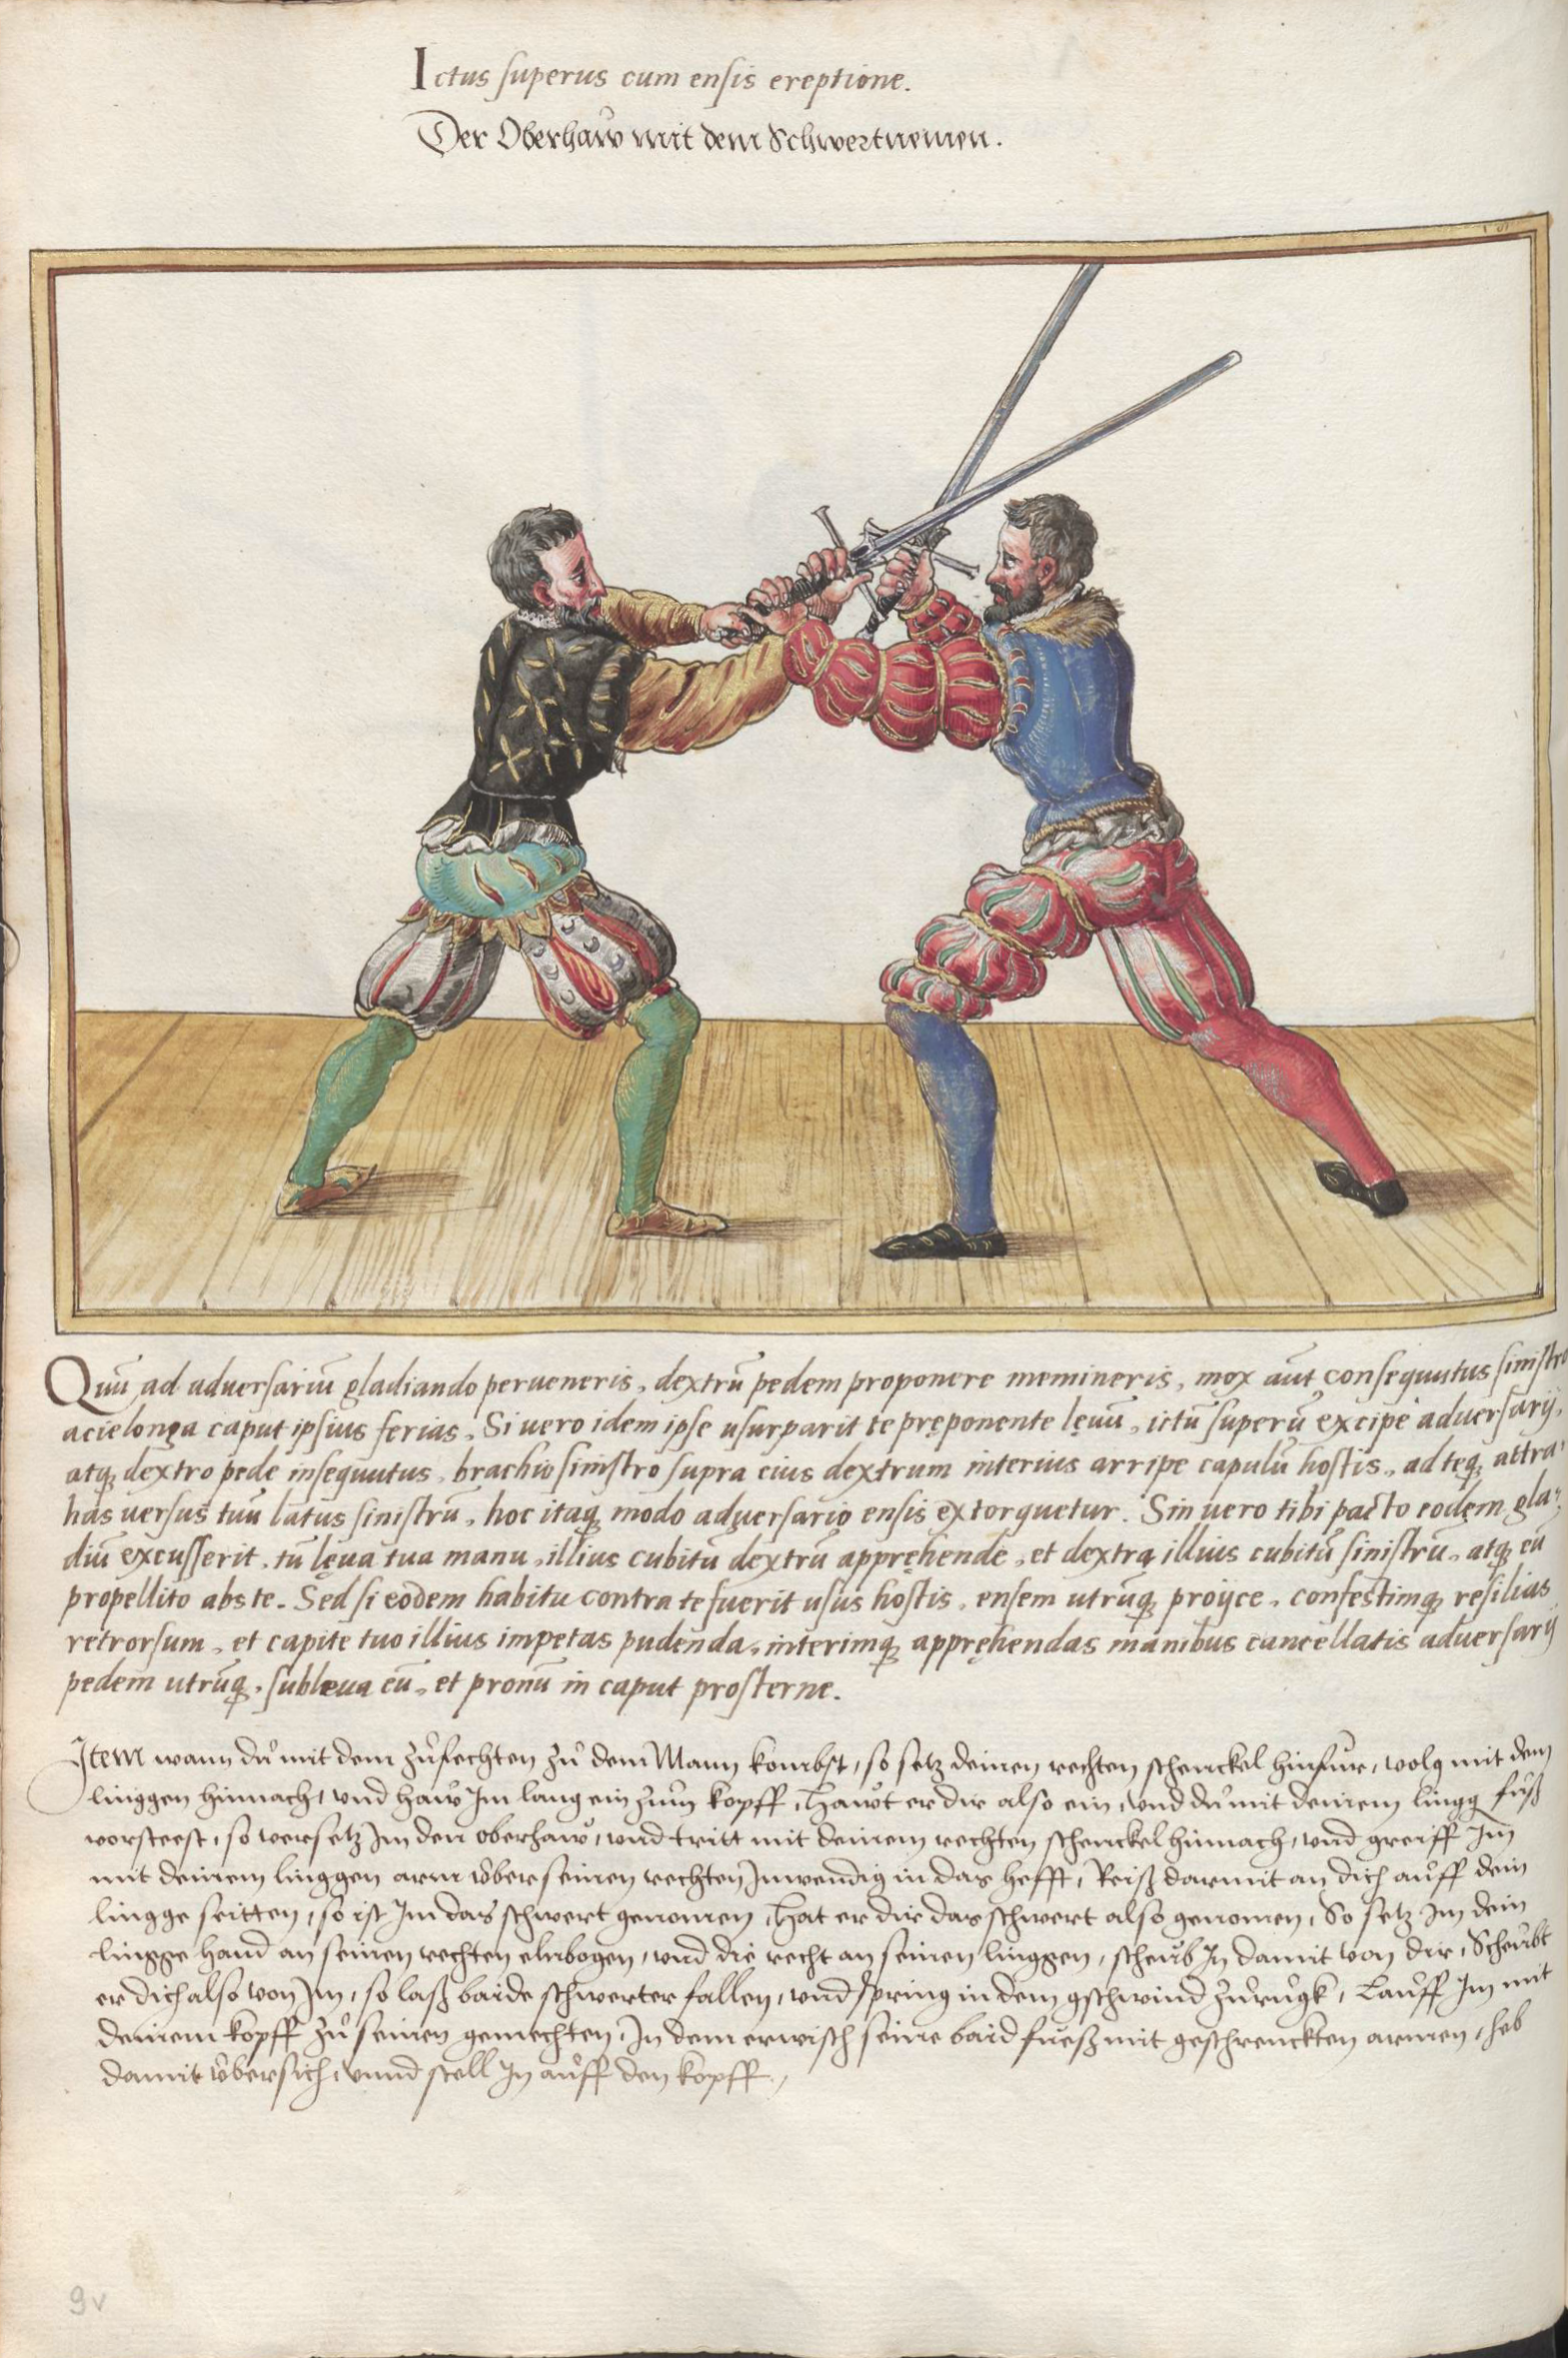 Ictus superus cum ensis ereptione.
Der Oberhaw mit dem Schwertnemen.
Quū ad aduersariū gladiando perueneris, dextrū pedem proponere memineris, mox aūt consequutus sinistro
acie longa caput ipsius ferias, Si uero idem ipse usurparit te pręponente lęuū, ictū superū excipe aduersarij,
atq; dextro pede insequutus, brachio sinistro supra eius dextrum interius arripe capulū hostis, ad teq; attra-
has uersus tuū latus sinistrū, hoc itaq; modo aduersario ensis extorquetur. Sin uero tibi pacto eodem gla-
diū excusserit, tū lęua tua manu, illius cubitū dextrū appręhende, et dextra illius cubitū sinistrū, atq; eū
propellito abs te. Sed si eodem habitu contra te fuerit usus hostis, ensem utrūq; proijce, confestimq; resilias
retrorsum, et capite tuo illius impetas pudenda, interimq; appręhendas manibus cancellatis aduersarij
pedem utrūq; subleua eū, et pronū in caput prosterne.
Item wann dů mit dem zůfechten zů dem Mann kombst, so setz deinen rechten schenckel hinfur, volg mit dem
linggen hinnach, und haw Im lang ein zům kopff, Hawt er dir also ein, und dů mit deinem lingg fůß
vorsteest, so versetz Im den oberhaw, und tritt mit deinem rechten schenckel hinnach, und greiff Im
mit deinem linggen arm über seinen rechten Inwendig in das hefft, Reiß darmit an dich auff dein
lingge seitten, so ist Im das schwert genomen, Hat er dir das schwert also genomen, So setz Im dein
lingge hand an seinen rechten elnbogen, und die recht an seinen linggen, scheub In damit von dir, Scheubt
er dich also von Im, so laß baide schwerter fallen, und spring in dem gschwind zůrugk, Lauff Im mit
deinem kopff zů seinen gemechten, In dem erwisch seine baid fueß mit geschrenckten armen, heb
damit übersich, unnd stell In auff den kopff,
9v